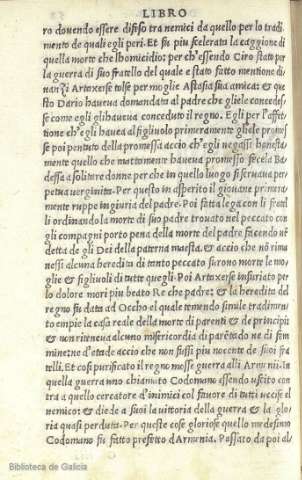 LIBRO
ro dovendo essere difeso tra nemici da quello per lo tradi
mento de quali egli peri. Et fu piu scelerata la caggione di
quella morte che l homicidio; per ch'essendo Ciro stato per
la guerra di suo fratello del quale e stato fatto mentione di
nanzi Artaxerse tolse per moglie Astasia sua amica: & que
sto Dario haueua domandata al padre che gliele concedes
se come egli glihaueua conceduto il regno. Egli per l'affet
tione ch'egli hauea al figliuolo primeramente ghele promes
se poi pentuto della promessa accio ch'egli negassi honesta
mente quello che mattamente haueua promesso fecela Ba
dessa a solitere donne per che in quello luogo si seruaua per
petua uerginita. Per questo in asperito il giouane primera
mente ruppe in giuria del padre. Poi fatta lega con li fratel
li ordinando la morte di suo padre trouato nel peccato con
gli compagni porto pena della morte del padre facendo uē
detta de gli Dei della paterna maesta. & accio che nō rima
nessi alcuna heredita di tanto peccato furono morte le mo
glie & figliuoli di tutte quegli. Poi Artaxerse infuriato per
lo dolore mori piu beato Re che padre: & la heredita del
regno fu data ad Ocho el quale temendo simile tradimen
to empie la casa reale della morte di parenti & de principi
& non riteneua alcuno misericordia di parētado ne di fem
mine ne d'eta de accio che non fussi piu nocente de suoi fra
telli. Et cosi purificato il regno messe guerra alli Armenii. In
quella guerra uno chiamato Codomano essendo uscito con
tra a quello cercatore d'inimici col fauore di tutti uccise el
nemico: & diede a suoi la uittoria della guerra & la glo
ria quasi perduta. Per queste cose gloriose quello medesimo
Codomano fu fatto prefetto d Armenia. Passato da poi al
Biblioteca de Galicia